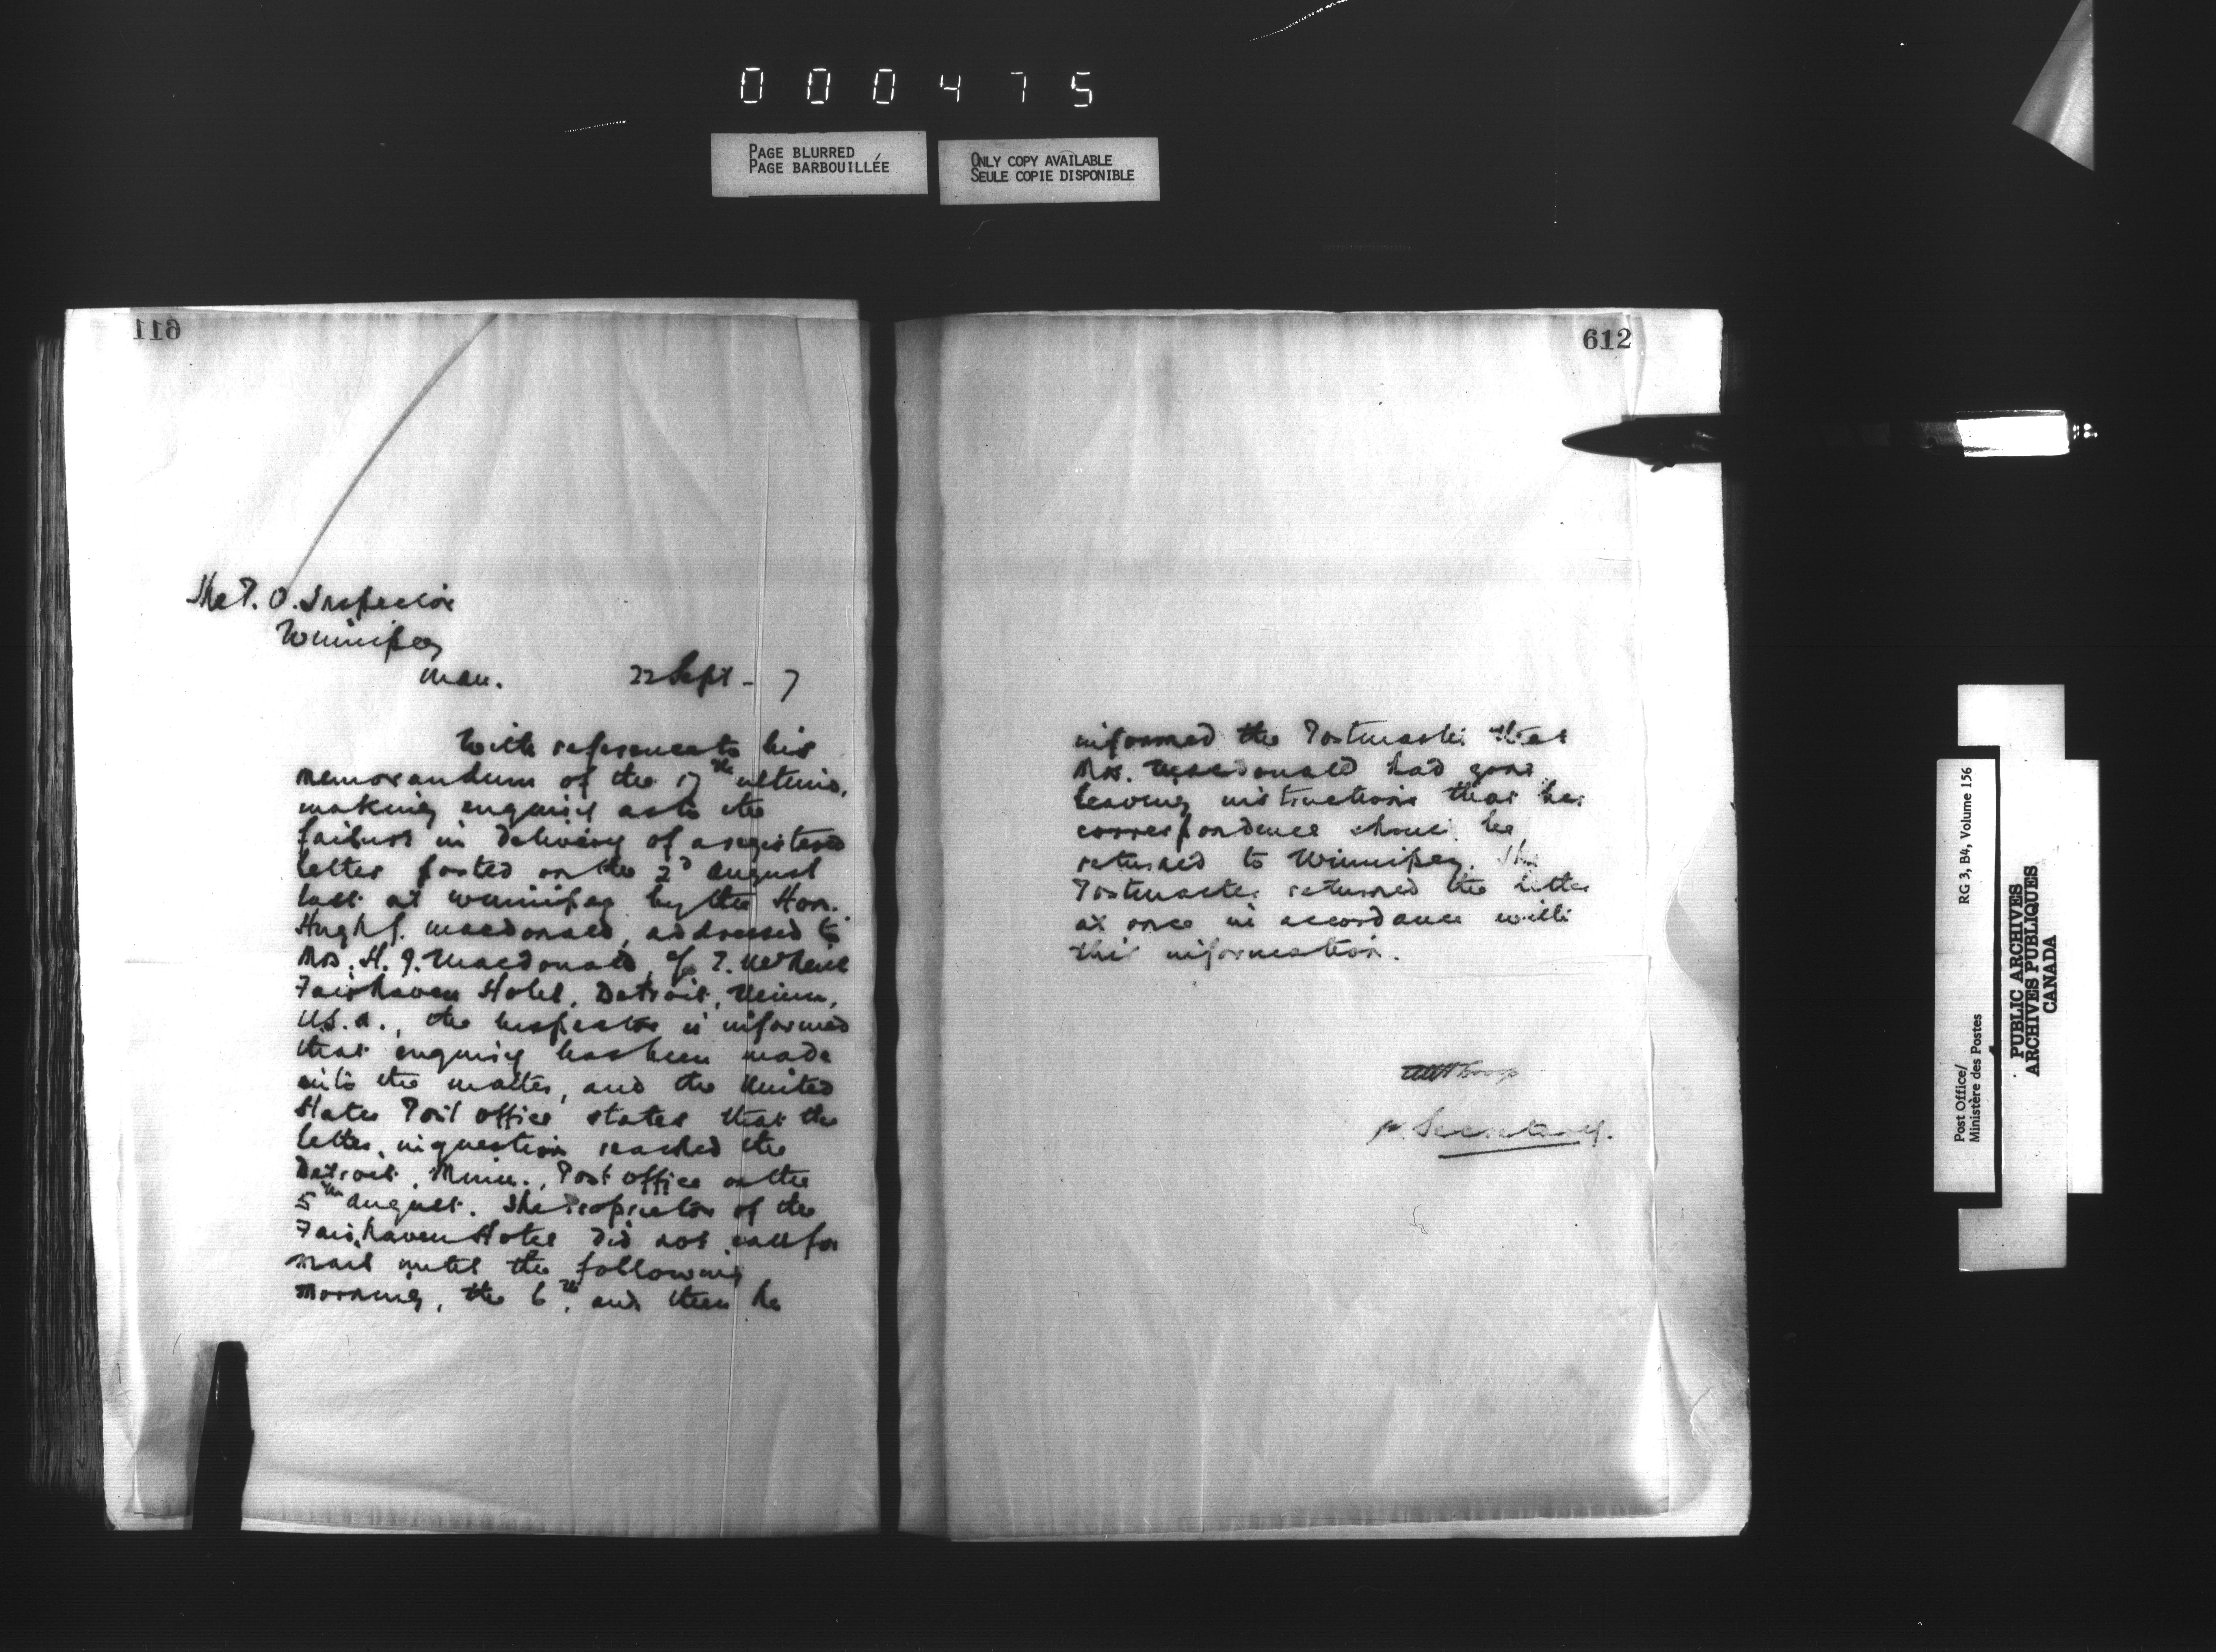 000475
PAGE BLURRED
PAGE BARBOUILLÉE
ONLY COPY AVAILABLE
SEULE COPIE DISPONIBLE
611
The P. O. Inspector
Winnipeg
Man. 22 Sept - 7
With reference to his
memorandum of the 17th ultimo,
making enquiry as to the
failure in delivery of a registered
letter posted on the 2d August
last at Winnipeg by the Hon.
Hugh J. Macdonald, addressed to
Mrs. H. J. Macdonald, c/o
Fairhaven Hotel, Detroit, Minn,
U.S.A., the Inspector is informed
that enquiry has been made
into the matter, and the United
States Post Office states that the
letter in question reached the
Detroit, Minn., Post Office on the
5th August. The Proprietor of the
Fairhaven Hotel did not call for
mail until the following
morning, the 6th, and then he
612
informed the Postmaster that
Mrs. Macdonald had gone
leaving instructions that her
correspondence should be
returned to Winnipeg. The
Postmaster returned the letter
at once in accordance with
this information.
p. Secretary.
Post Office/
Ministère des Postes
RG 3, B4, Volume 156
PUBLIC ARCHIVES
ARCHIVES PUBLIQUES
CANADA